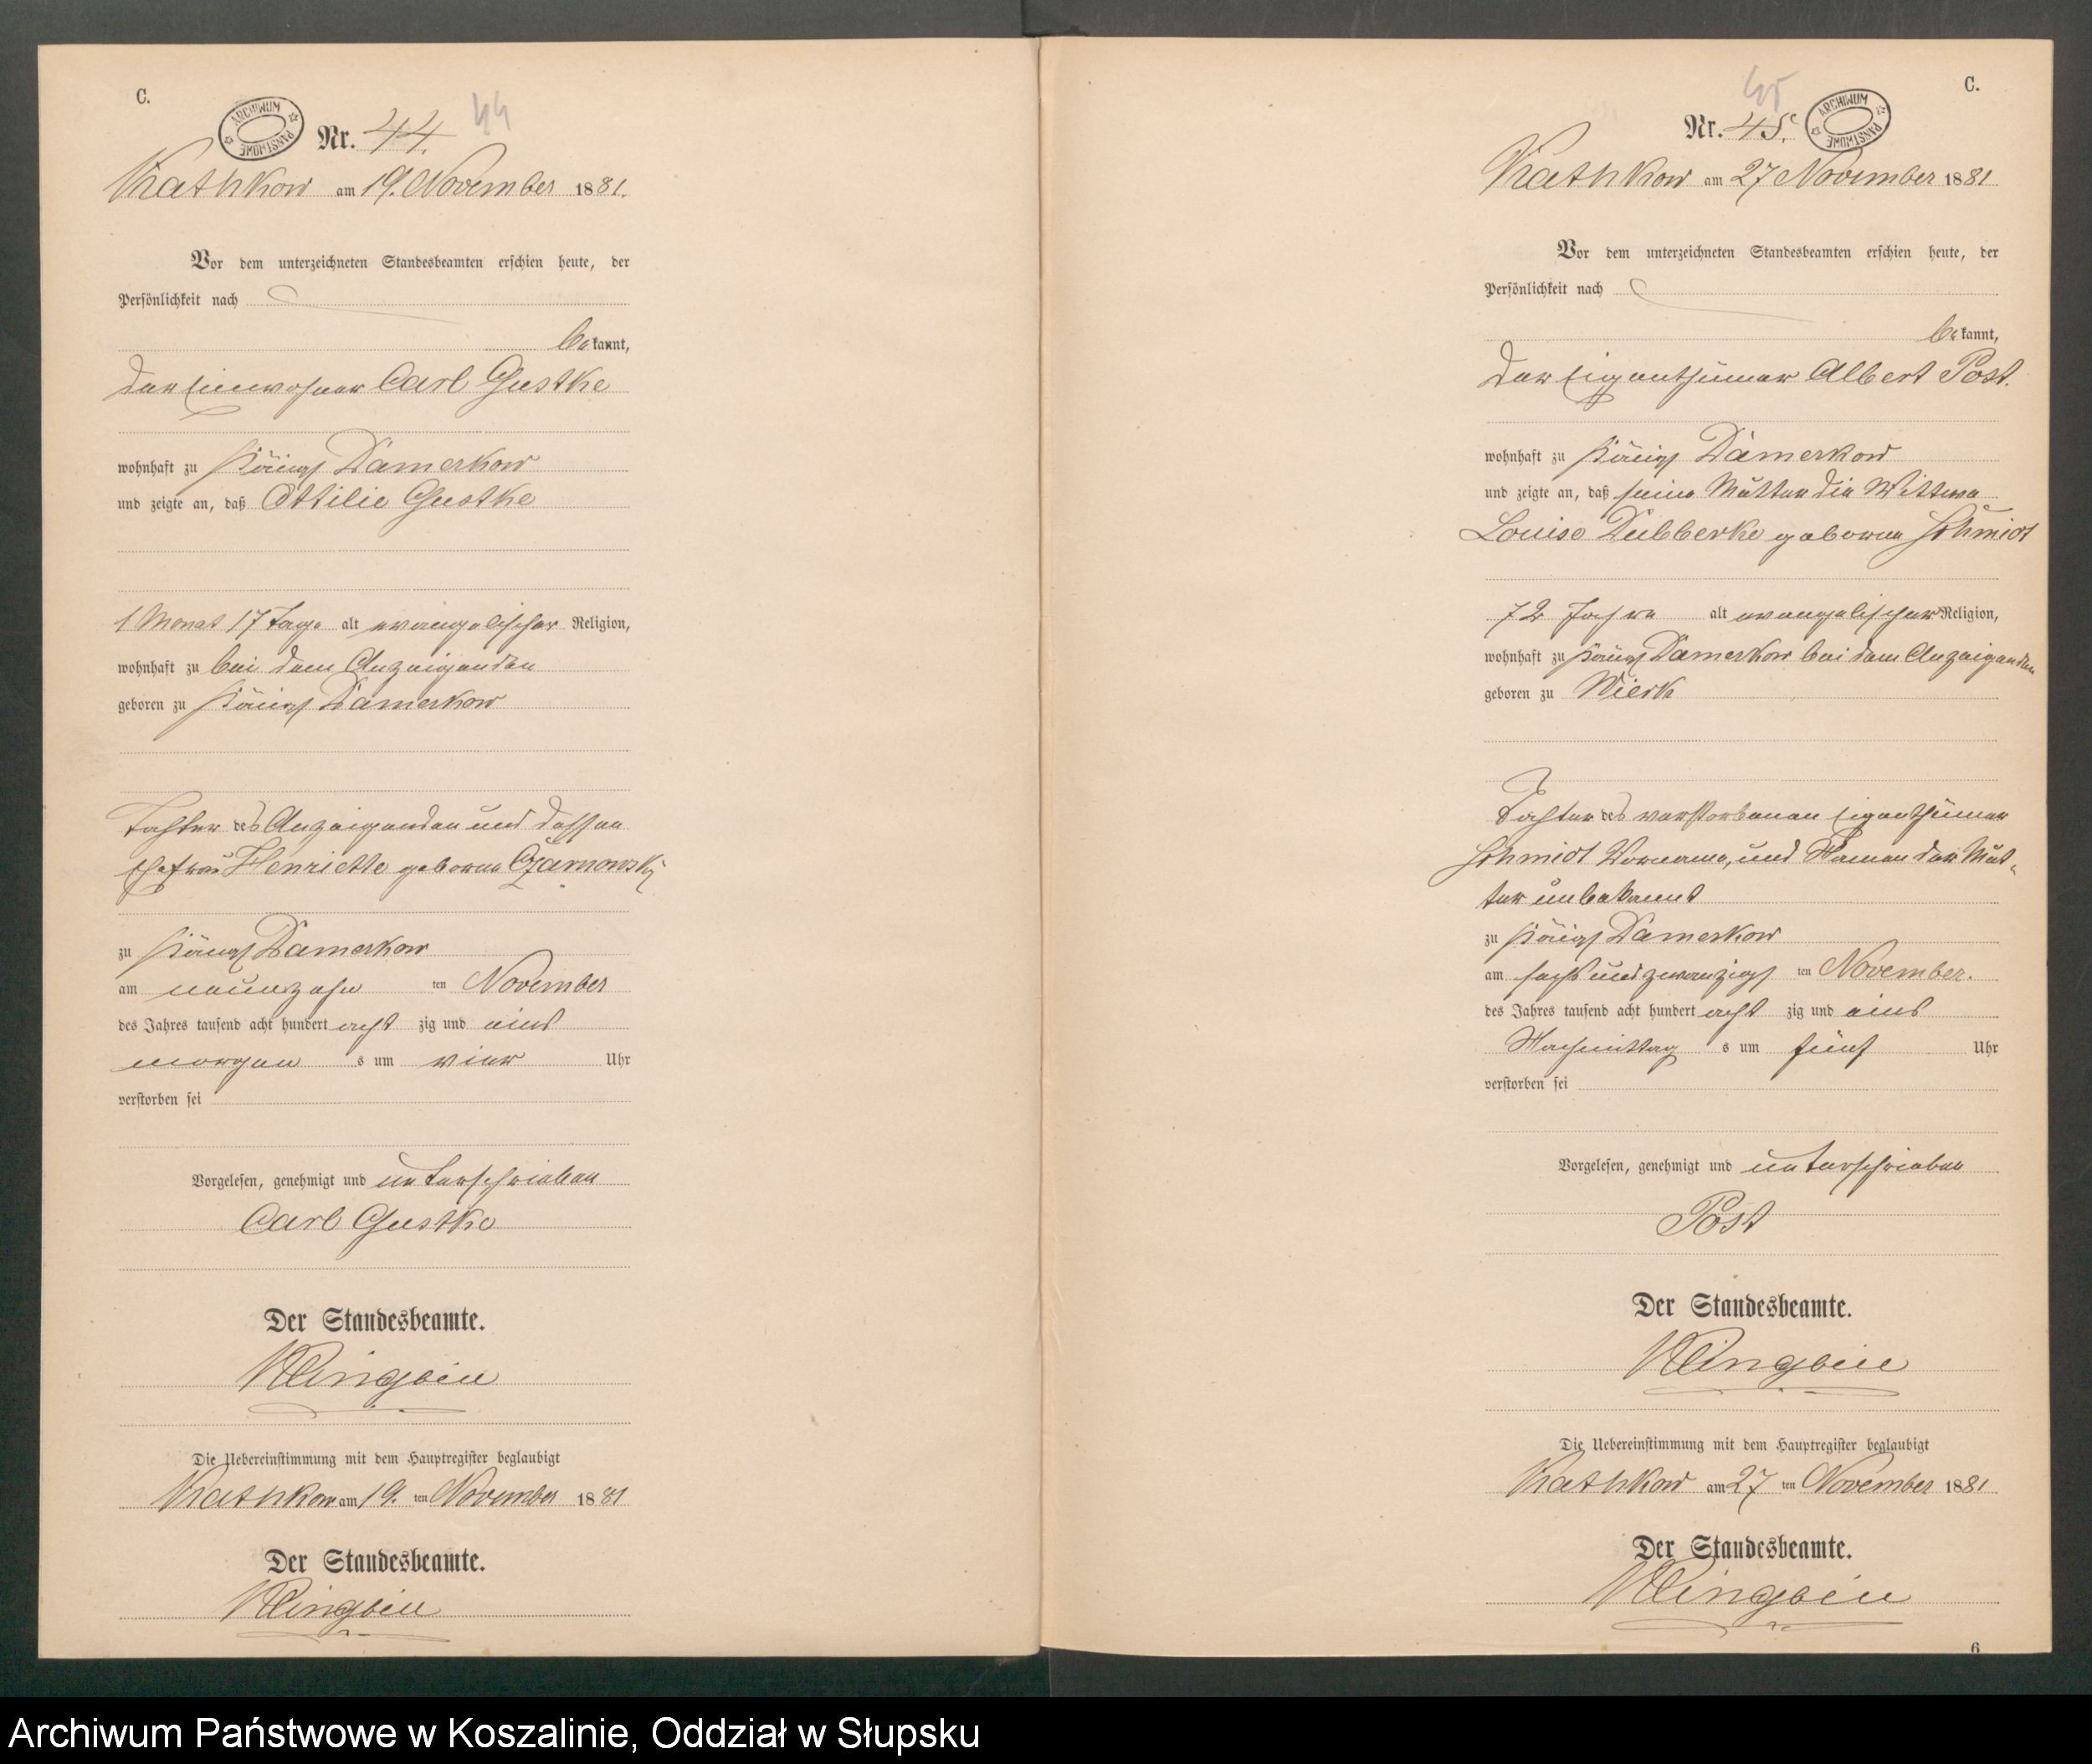 C.
ARCHIWUM PAŃSTWOWE
44
Nr. 44.
Krathkow am 19. November 1881.
Vor dem unterzeichneten Standesbeamten erschien heute, der
Persönlichkeit nach
bekannt,
der Einwohner Carl Gustke
wohnhaft zu Königl Damerkow
und zeigte an, daß Ottilie Gustke
1 Monat 17 Tage alt evangelischer Religion,
wohnhaft zu bei dem Anzeigenden
geboren zu Königl Damerkow
Tochter des Anzeigenden und dessen
Ehefrau Henriette geborne Czarnowsky
zu Königl Damerkow
am neunzehn ten November
des Jahres tausend acht hundert acht zig und eins
morgen s um vier Uhr
verstorben sei
Vorgelesen, genehmigt und unterschrieben
Carl Gustke
Der Standesbeamte.
Klingbeil
Die Uebereinstimmung mit dem Hauptregister beglaubigt
Krathkow am 19. ten November 1881
Der Standesbeamte.
Klingbeil
C.
45
ARCHIWUM PAŃSTWOWE
Nr. 45.
Krathkow am 27 November 1881
Vor dem unterzeichneten Standesbeamten erschien heute, der
Persönlichkeit nach
bekannt,
der Eigenthümer Albert Post.
wohnhaft zu Königl Damerkow
und zeigte an, daß seine Mutter die Wittwe
Louise Dubberke geborne Schmidt
72 Jahre alt evangelischer Religion,
wohnhaft zu Königl Damerkow bei dem Anzeigenden
geboren zu Wierk
Tochter des verstorbenen Eigenthümer
Schmidt Vorname, und Namen der Mut-
ter unbekannt
zu Königl Damerkow
am sechsundzwanzigs ten November.
des Jahres tausend acht hundert acht zig und eins
Nachmittag s um fünf Uhr
verstorben sei
Vorgelesen, genehmigt und unterschrieben
Post
Der Standesbeamte.
Klingbeil
Die Uebereinstimmung mit dem Hauptregister beglaubigt
Krathkow am 27 ten November 1881
Der Standesbeamte.
Klingbeil
6
Archiwum Państwowe w Koszalinie, Oddział w Słupsku